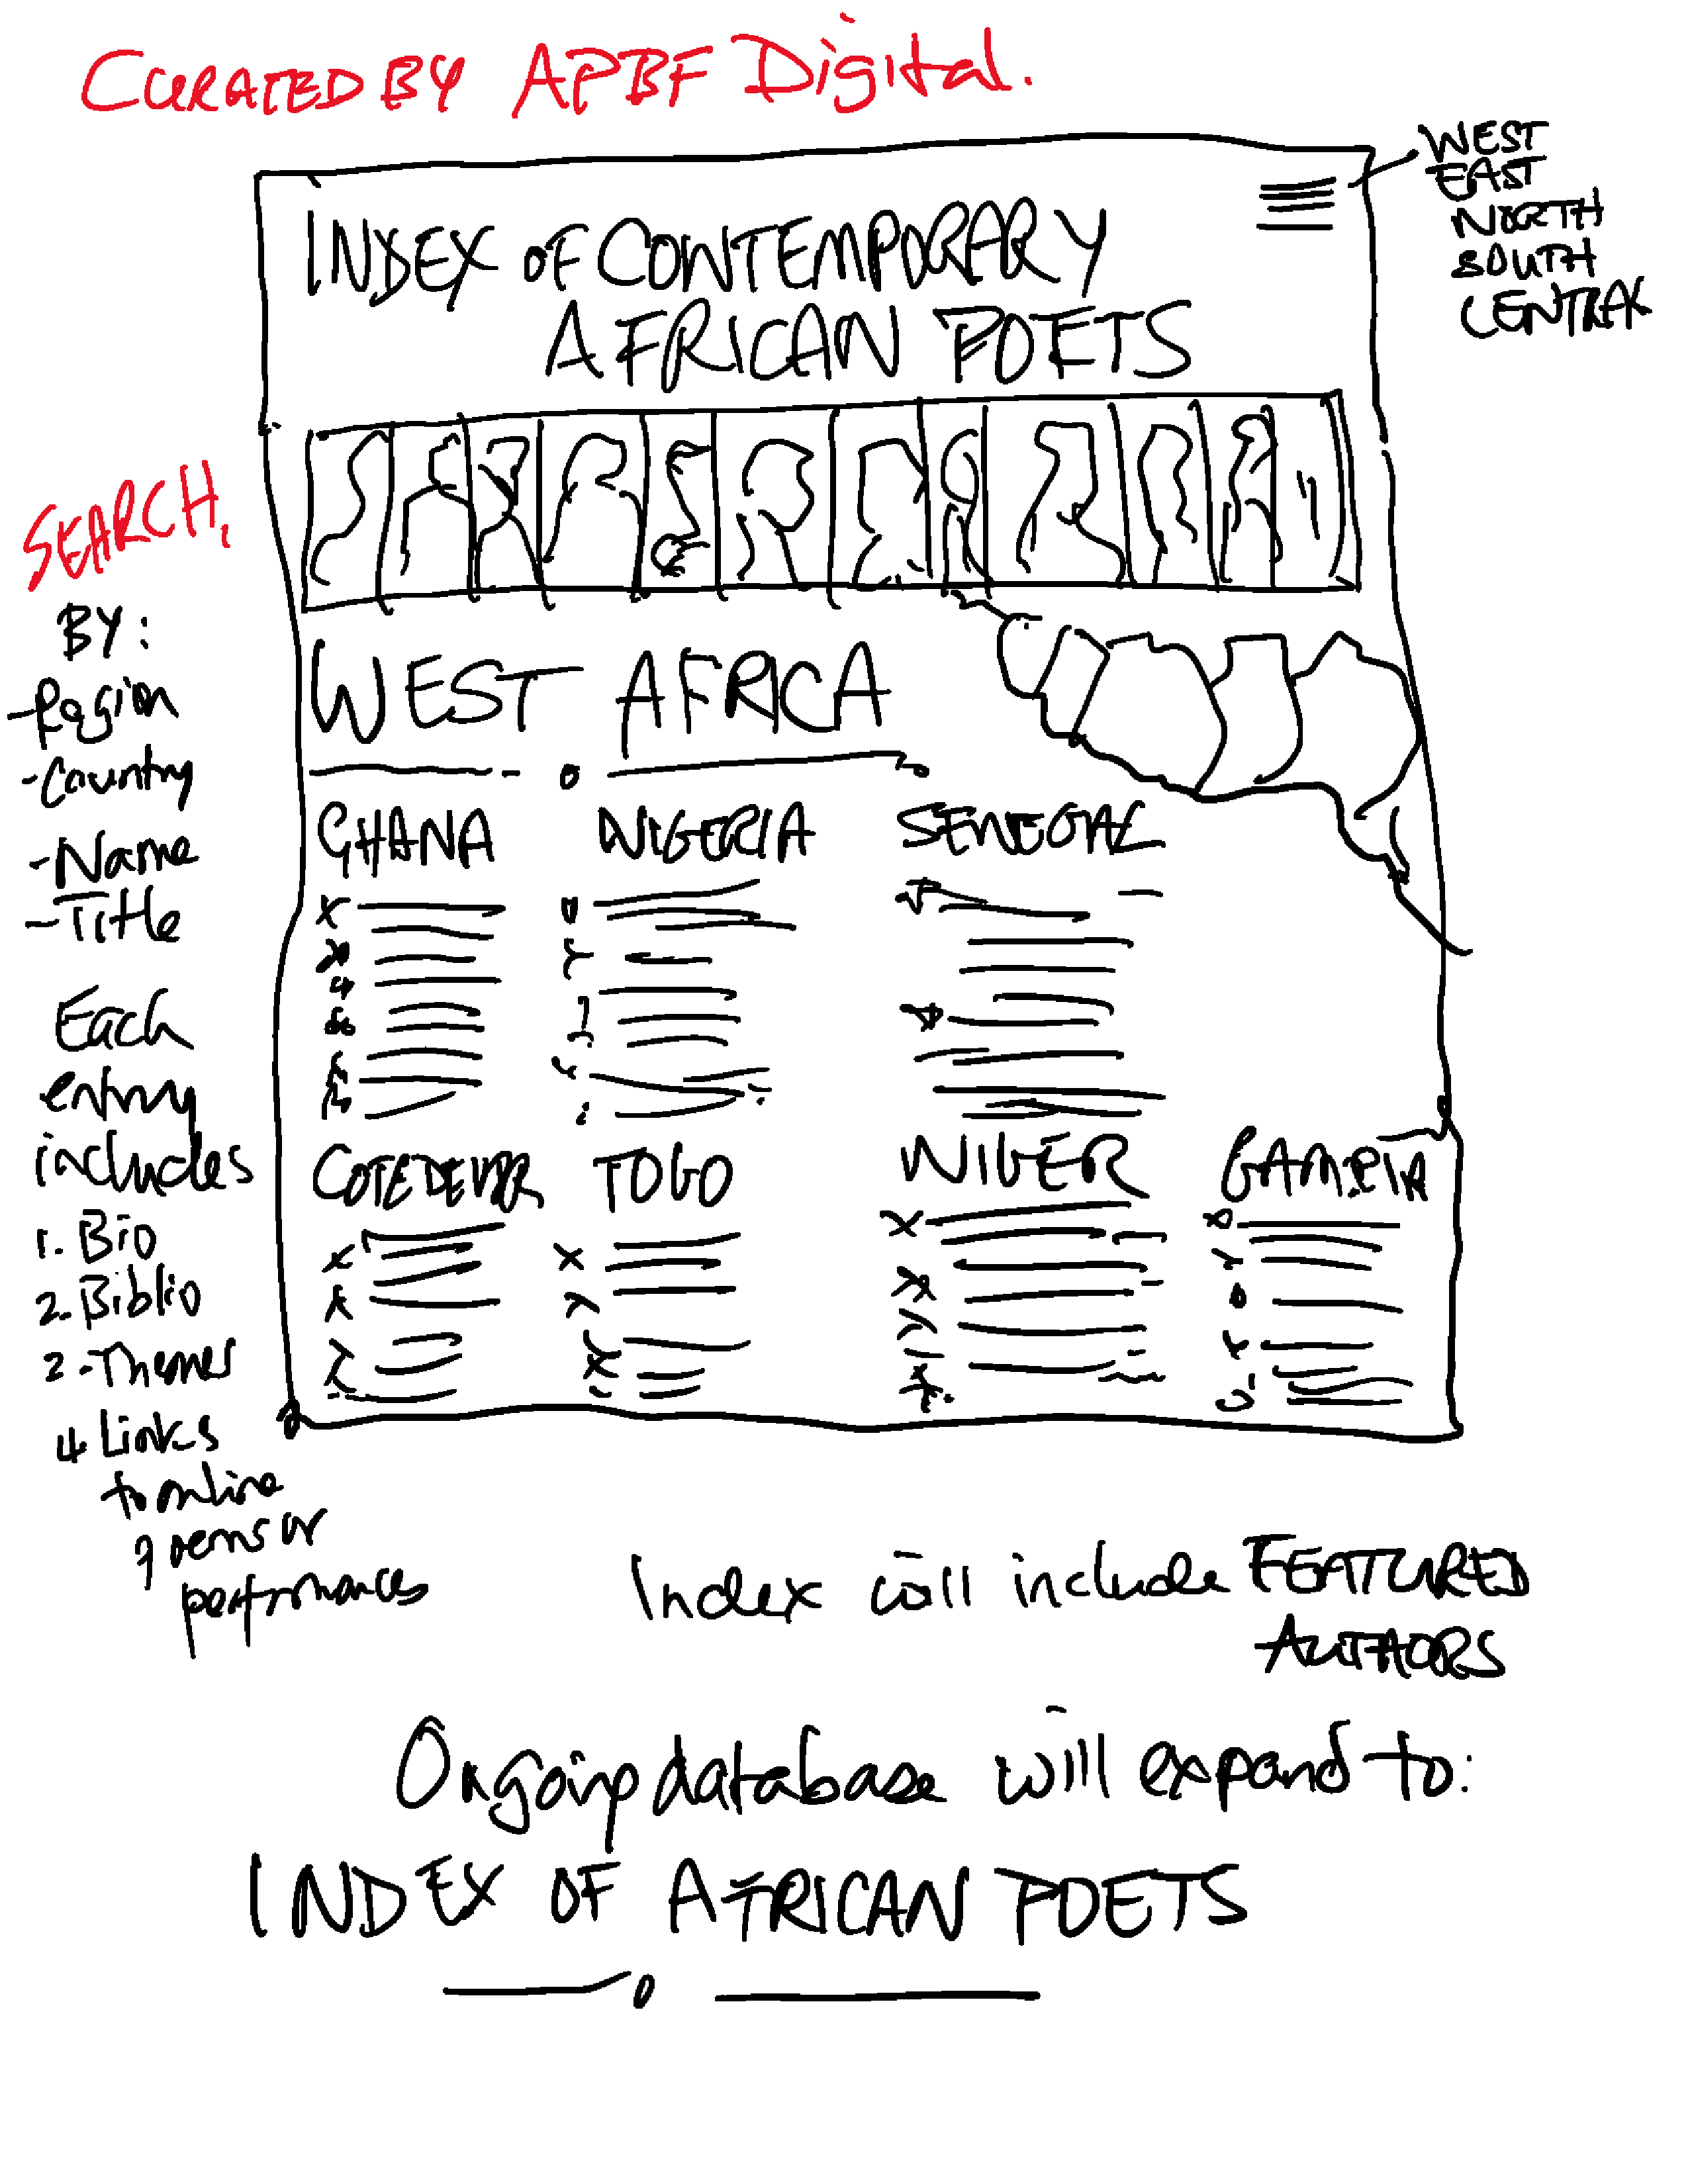 CURATED BY APBF Digital.
WEST
EAST
NORTH
SOUTH
CENTRAL
INDEX OF CONTEMPORARY
AFRICAN POETS
SEARCH
BY:
-Region
-Country
-Name
-Title
Each
entry
includes
1. Bio
2. Biblio
2.-Themes
4 Links
to online
poems or
performances
WEST AFRICA
GHANA NIGERIA SENEGAL
TOGO NIGER GAMBIA
Index will include FEATURED
AUTHORS
Ongoing database will expand to:
INDEX OF AFRICAN POETS